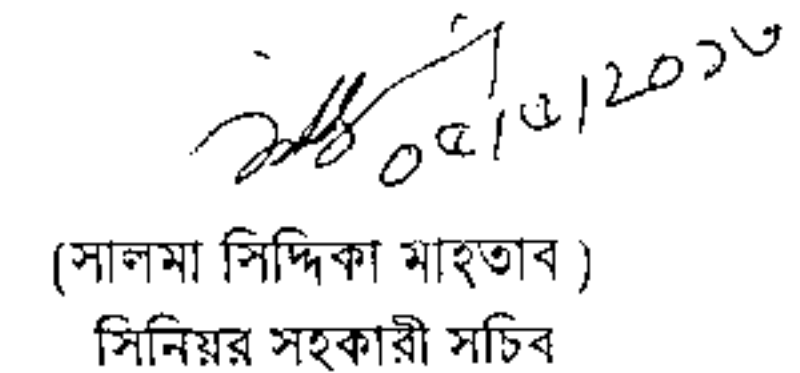 ০৫/৫/২০১৩
(সালমা সিদ্দিকা মাহতাব )
সিনিয়র সহকারী সচিব